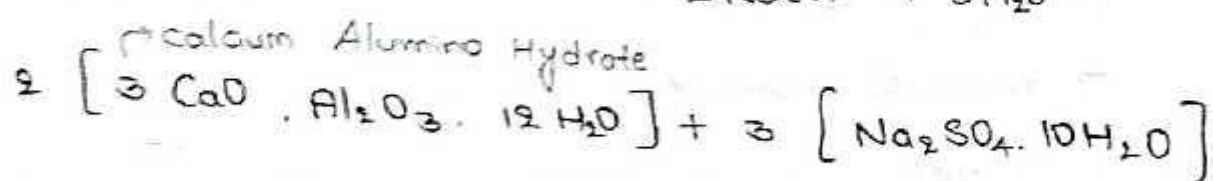 + 3H₂O
calcium Alumino Hydrate
2 [3 CaO . Al₂O₃. 12 H₂O] + 3 [Na₂SO₄. 10H₂O]